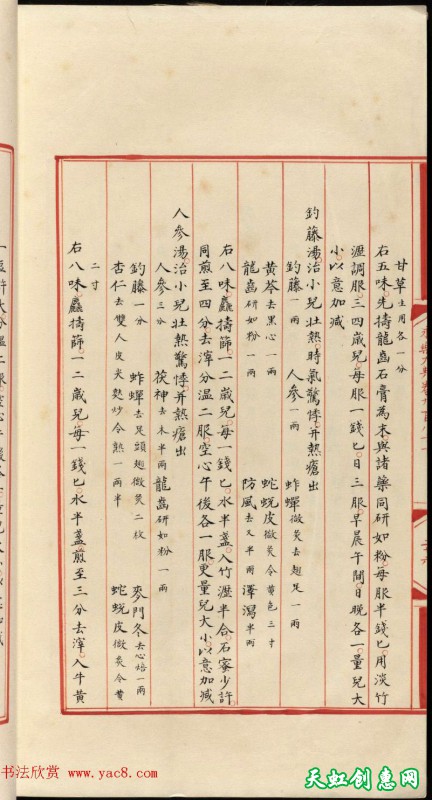 甘草生用各一分
右五味先擣龍齒石膏為末與諸藥同研如粉每服半錢匕用淡竹
瀝調服三四歲兒每服一錢匕日三服早晨午間日晚各一量兒大
小以意加減
釣藤湯治小兒壯熱時氣驚悸并熱瘡出
釣藤一兩 人參一兩 蚱蟬微炙去翅足一兩
黃芩去黑心一兩 蛇蛻皮微炙令黃色三寸
龍齒研如粉一兩 防風去叉半兩 澤瀉半兩
右八味麤擣篩一二歲兒每一錢匕水半盞入竹瀝半合石蜜少許
同煎至四分去滓分溫二服空心午後各一服更量兒大小以意加減
人參湯治小兒壯熱驚悸并熱瘡出
人參三分 茯神去木半兩 龍齒研如粉一兩
釣藤一分 蚱蟬去足頭翅微炙二枚 麥門冬去心焙一兩
杏仁去雙人皮尖麩炒令熟一兩半 蛇蛻皮微炙令黃
二寸
右八味麤擣篩一二歲兒每一錢匕水半盞煎至三分去滓入牛黃
书法欣赏 www.yac8.com
天虹创惠网